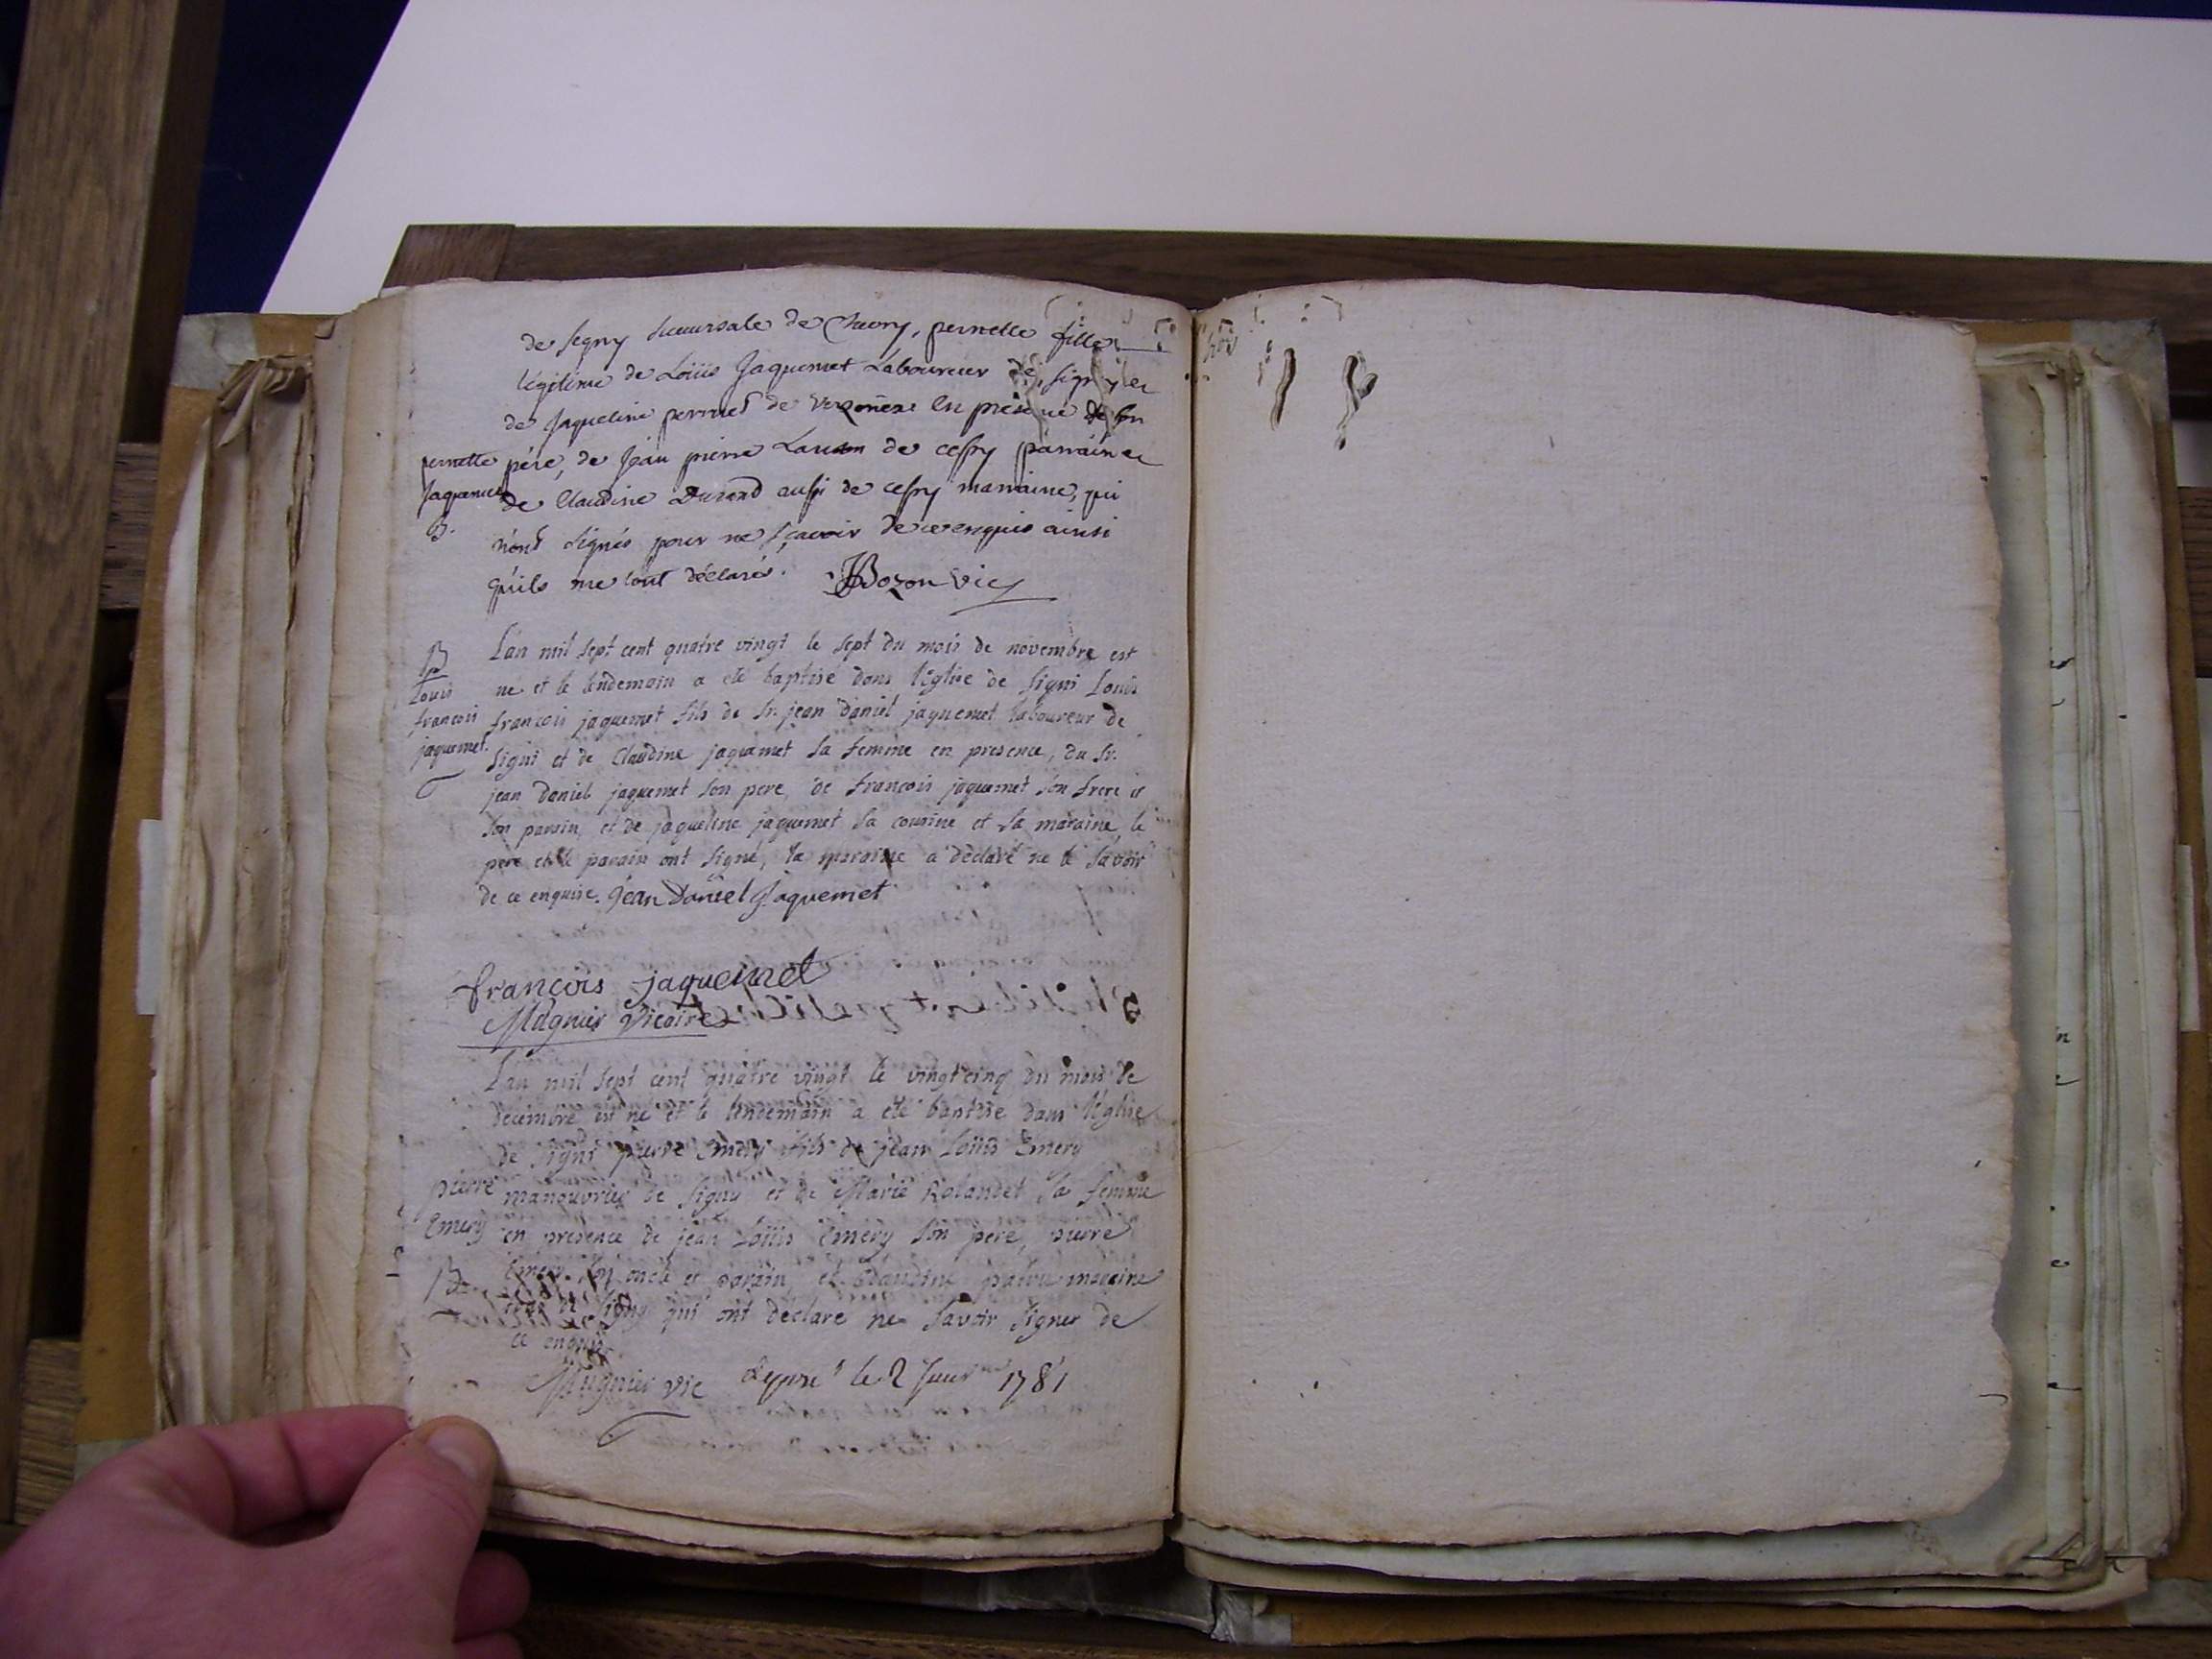 de Segny succursale de Chevry, pernette fille
légitime de Loüis Jaquemet Laboureur de Signy et
de Jaqueline perrud de en présence de son
pernette père, de Jean pierre de Cessy parrain et
Jaquemet de Claudine Durand aussi de Cessy marraine, qui
B. n'ont signés pour ne sçavoir de ce enquis ainsi
qu'ils me l'ont déclaré. Bozon vic
B L'an mil sept cent quatre vingt le sept du mois de novembre est
Louis né et le lendemain a été baptisé dans l'Eglise de Signi Louis
francois francois jaquemet fils de Sr. jean Daniel jaquemet laboureur de
jaquemet. Signi et de Claudine jaquemet sa femme en presence, du Sr.
jean Daniel jaquemet son pere, de francois jaquemet son frere et
son parain, et de jaqueline jaquemet sa cousine et sa maraine, le
pere et le parain ont signé, la maraine a déclaré ne le savoir
de ce enquise. Jean Daniel Jaquemet
françois jaquemet
Mugnier Vicaire
L'an mil sept cent quatre vingt le vingt cinq du mois de
decembre est né et le lendemain a eté baptisé dans l'Eglise
de Signi pierre Emery fils de jean Loüis Emery
pierre manouvrier de Signy et de Marie Rolandet sa femme
Emery en presence de jean Loüis Emery son pere, pierre
B. Emery son oncle et parain, et Claudine maraine
tous de Signy qui ont declaré ne savoir signer de
ce enquis.
Mugnier vic le 2 Janv 1781